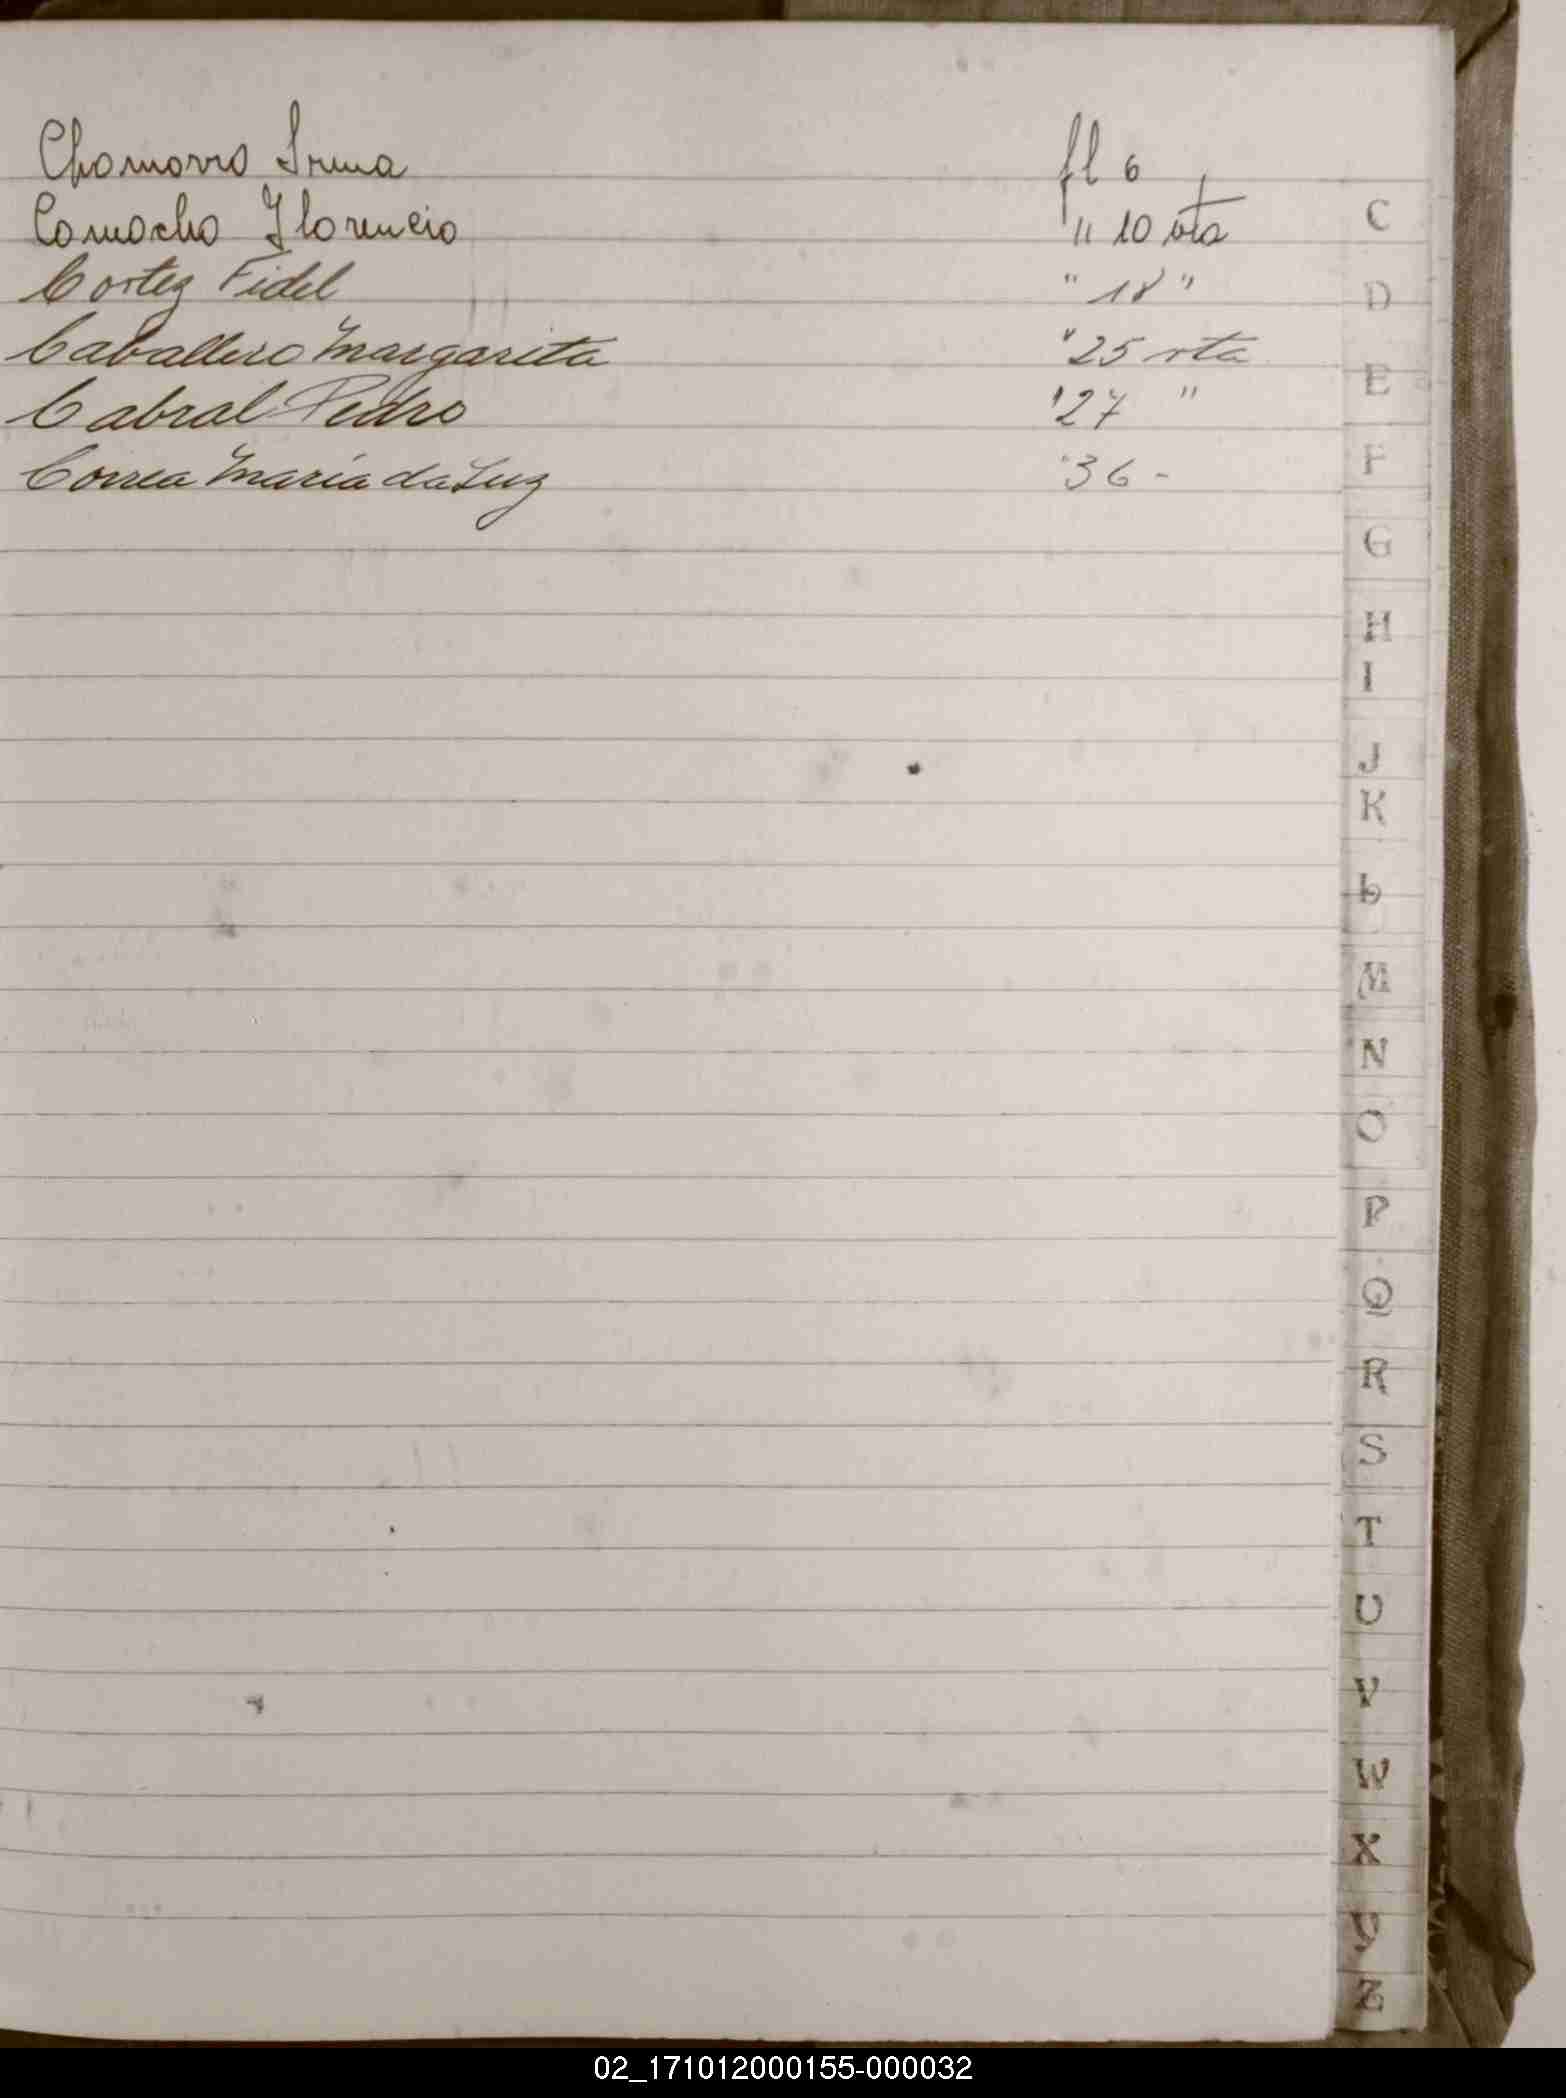 Chamorro Irma fl 6
Camacho Florencio " 10 vta
Cortez Fidel " 18 "
Caballero Margarita " 25 vta
Cabral Pedro " 27 "
Correa Maria da Luz " 36 -
C
D
E
F
G
H
I
J
K
L
M
N
O
P
Q
R
S
T
U
V
W
X
Y
Z
02_171012000155-000032